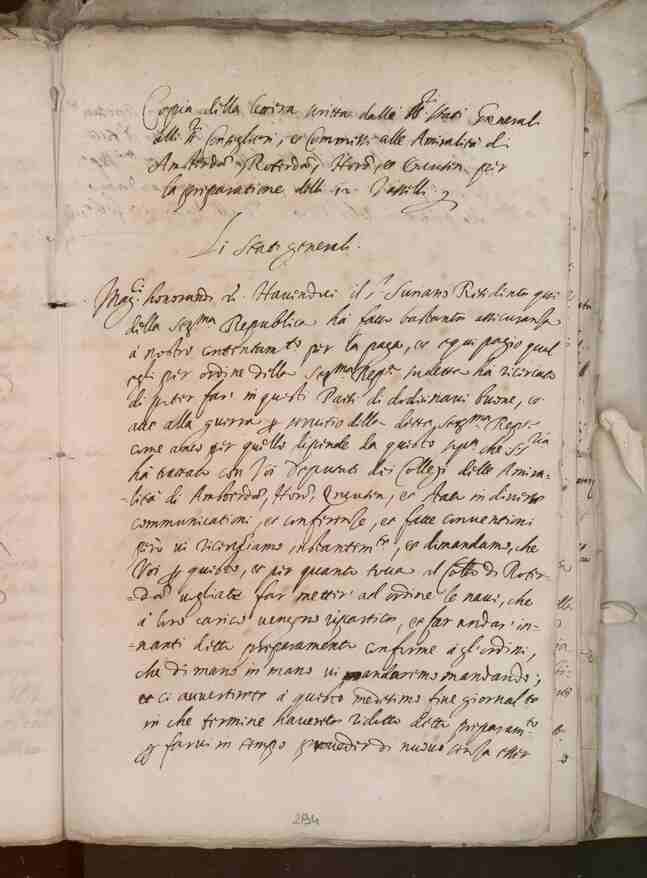 Coppia della lettera scritta dalli SS.ri Stati Generali
alli SS.ri Consiglieri, et Committti alle Amiralità di
Amsterdam, Roterdam, Horn, et Encusen per
la preparatione delli 12 Vasselli
Li Stati generali.
Mag.ci honorandi Havendoci il S.r Suriano Residente qui
della Ser.ma Republica ha fatto bastante assicuranza
à nostro contentam.to per la paga, et equipagio qual
egli per ordine della Ser.ma Rep.ca sudetta ha ricercato
di poter far in questi Paesi di dodici navi buone, et
atte alla guerra p servitio della detta Ser.ma Repca
come anco per quello dipende da questo che
ha trattato con Voi Deputati dei Collegi delle Amira-
-lità di Amsterdam, Horn, Encusen, et stato in diverse
communicationi, et conferenze, et fatte conventioni
però vi ricerchiamo instantem.te, et dimandamo, che
Voi p questo, et per quanto tocca il Coll.o di Roter-
-dam vogliate far metter ad ordine le navi, che
à loro carico vengono ripartite, et far andar in-
-nanti detto preparamento conforme à gl'ordini,
che di mano in mano vi andaremo mandando;
et ci avvertirete à questo medesimo fine giornal.te
in che termine haverete ridotto detto preparam.to
p farvi in tempo proveder di nuovo senza esser
284